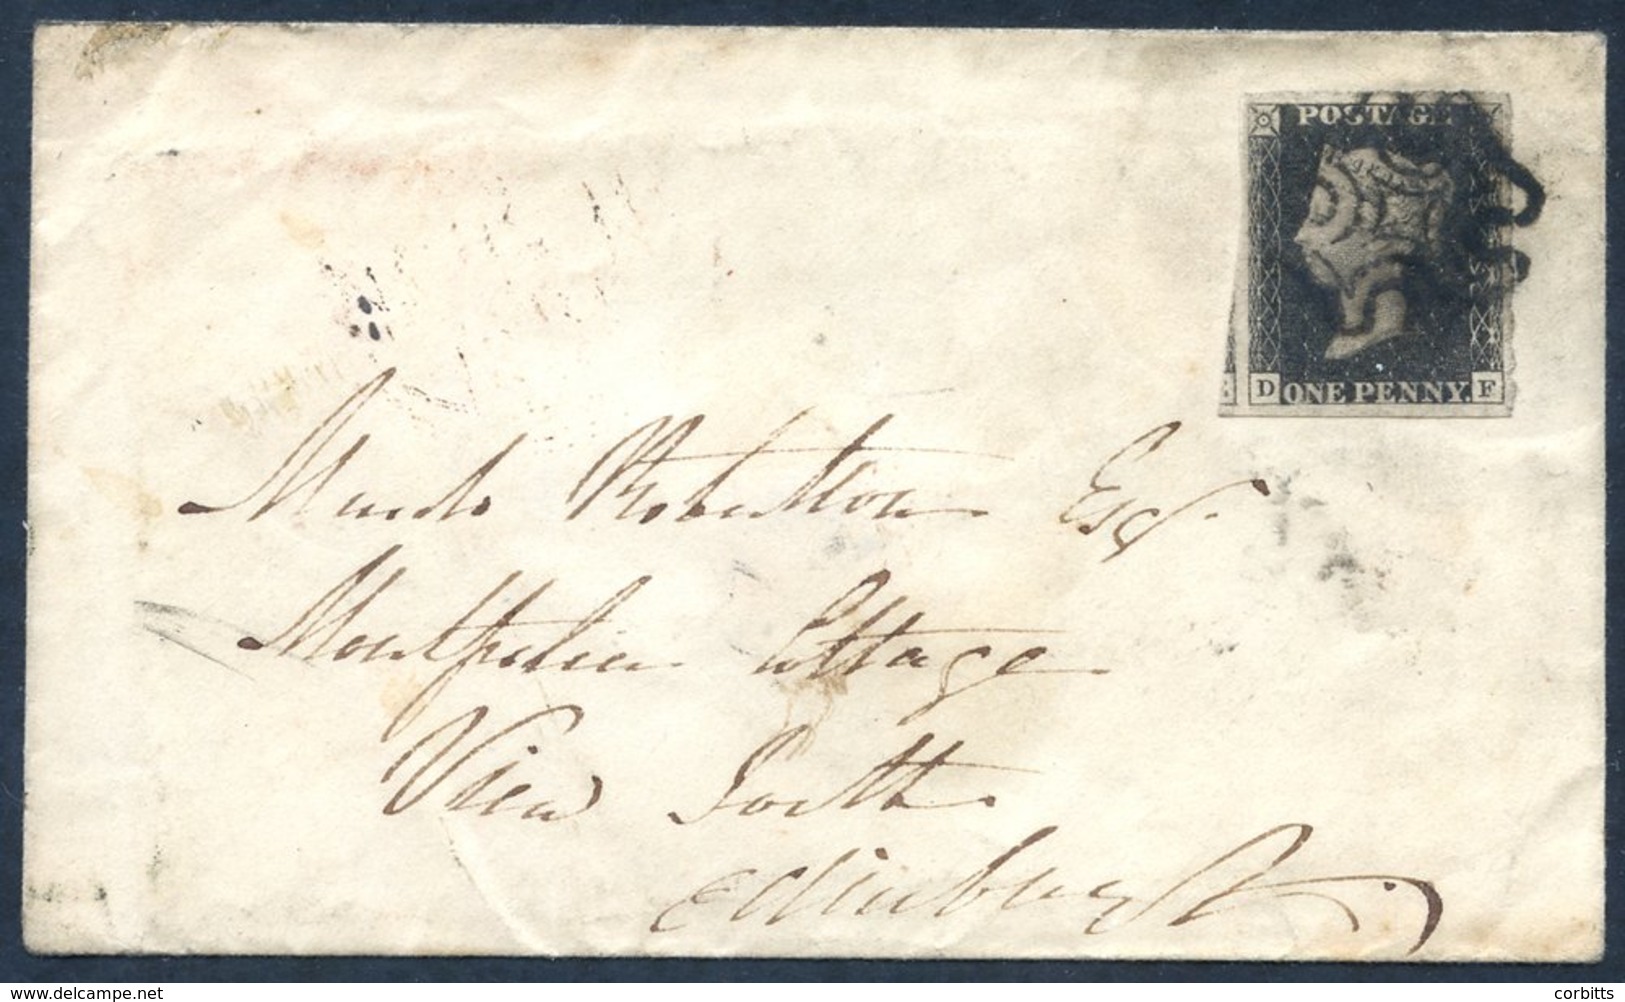 POSTAGE
D ONE PENNY. F
Mundo Robertson Esqr.
Montpelier Cottage
View Forth
Edinburgh
www.delcampe.net
corbitts